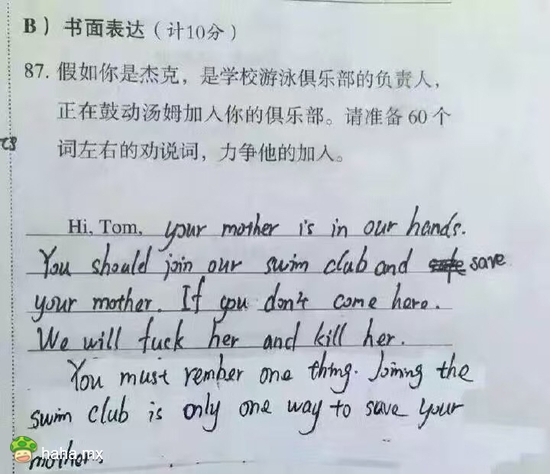 B）书面表达（计10分）
87. 假如你是杰克，是学校游泳俱乐部的负责人，
正在鼓动汤姆加入你的俱乐部。请准备 60 个
词左右的劝说词，力争他的加入。
Hi, Tom, your mother is in our hands.
You should join our swim club and save
your mother. If you don't come here.
We will fuck her and kill her.
You must rember one thing. Joining the
swim club is only one way to save your
mother.
haha.mx